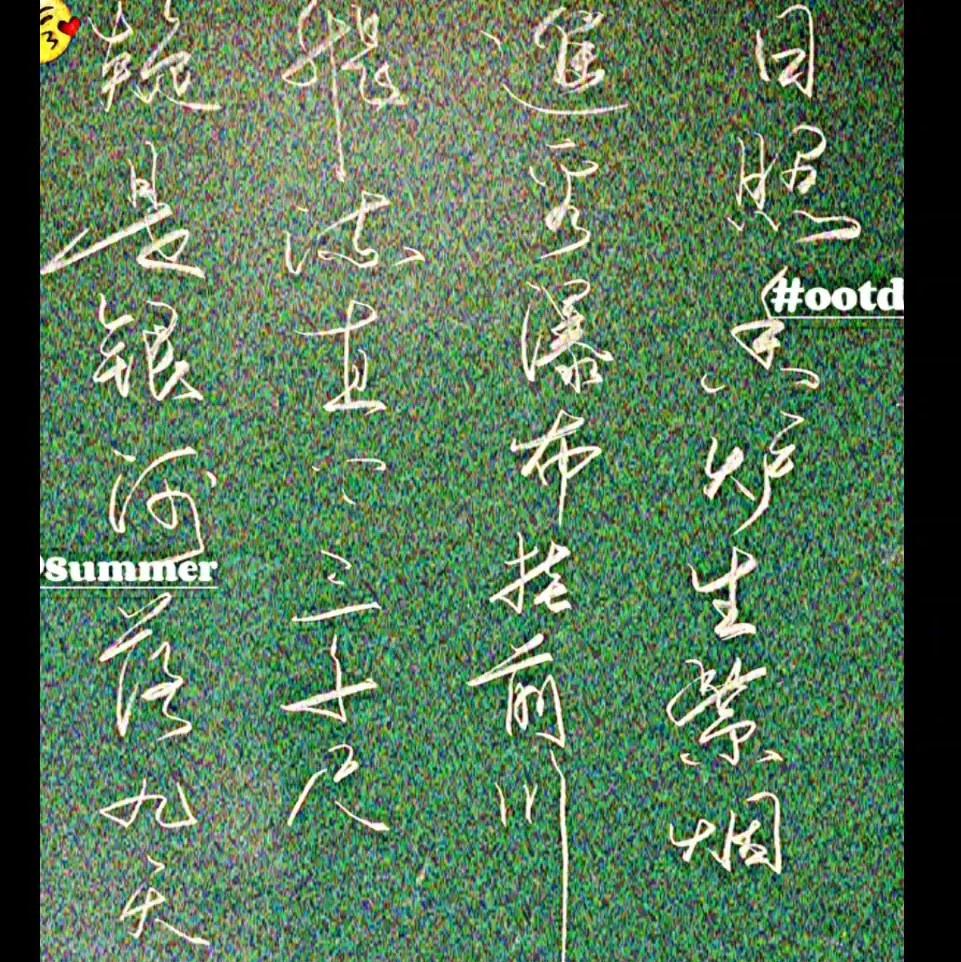 日照香炉生紫烟
遥看瀑布挂前川
飛流直下三千尺
疑是银河落九天
#ootd
@Summer